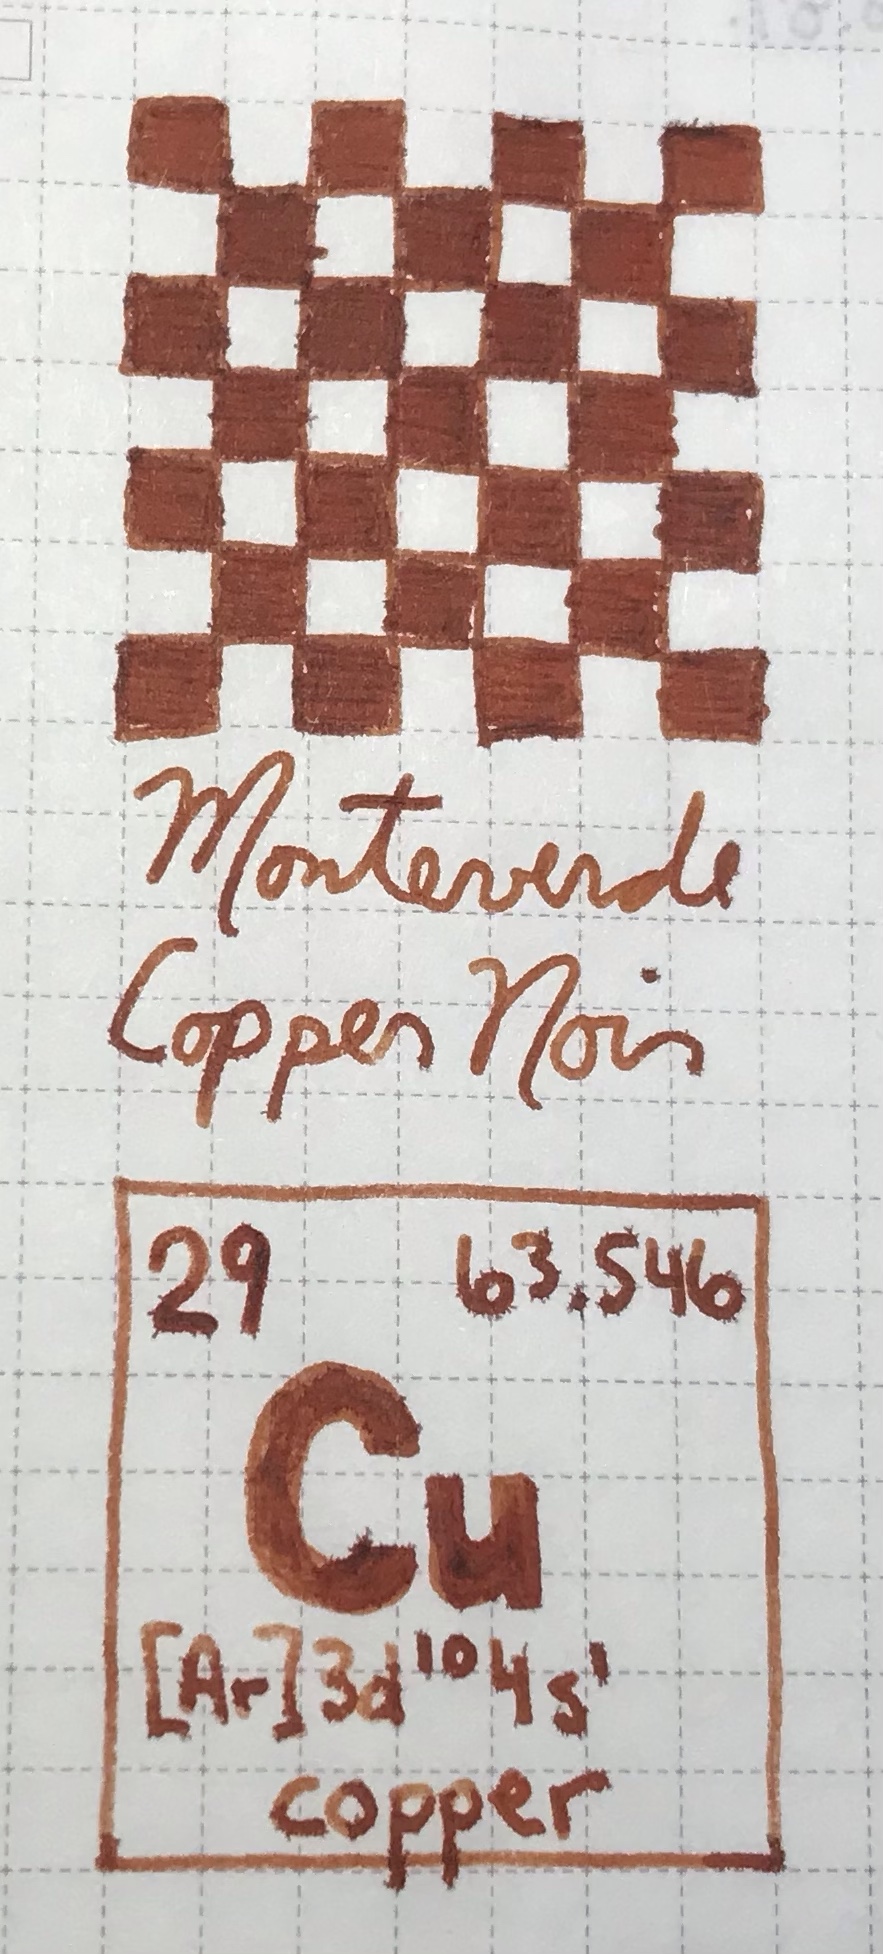 Monteverde
Copper Noir
29 63.546
Cu
[Ar]3d¹⁰4s¹
copper